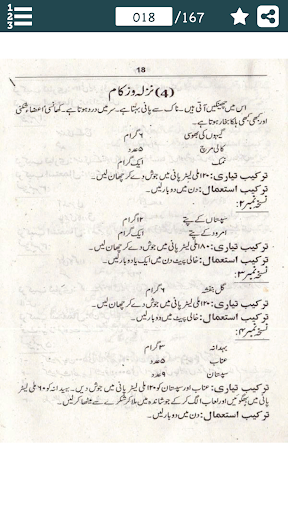 018 /167
18
(4) نزلہ و زکام
اس میں چھینکیں آتی ہیں۔ ناک سے پانی بہتا ہے۔ سر میں درد ہوتا ہے۔ کھانسی، اعضاء شکنی
اور کبھی کبھی ہلکا بخار ہوتا ہے۔
گیہوں کی بھوسی ۶ گرام
کالی مرچ ۵ عدد
نمک ایک گرام
ترکیب تیاری: ۱۲۰ ملی لیٹر پانی میں جوش دے کر چھان لیں۔
ترکیب استعمال: دن میں دو بار لیں۔
نسخہ نمبر ۲:
سپستاں کے پتے ۱۲ گرام
امرود کے پتے ایک گرام
ترکیب تیاری: ۱۸۰ ملی لیٹر پانی میں جوش دے کر چھان لیں۔
ترکیب استعمال: خالی پیٹ دن میں ایک یا دو بار لیں۔
نسخہ نمبر ۳:
گل بنفشہ ۶ گرام
ترکیب تیاری: ۱۲۰ ملی لیٹر پانی میں جوش دے کر چھان لیں۔
ترکیب استعمال: خالی پیٹ دن میں دو بار لیں۔
نسخہ نمبر ۴:
بہدانہ ۳ گرام
عناب ۵ عدد
سپستان ۹ عدد
ترکیب تیاری: عناب اور سپستان کو ۱۲۰ ملی لیٹر پانی میں جوش دیں۔ بہدانہ کو ۶۰ ملی لیٹر
پانی میں بھگوئیں اور لعاب الگ کر کے جوشاندہ میں ملا کر شکر سے میٹھا کر لیں۔
ترکیب استعمال: دن میں دو بار لیں۔